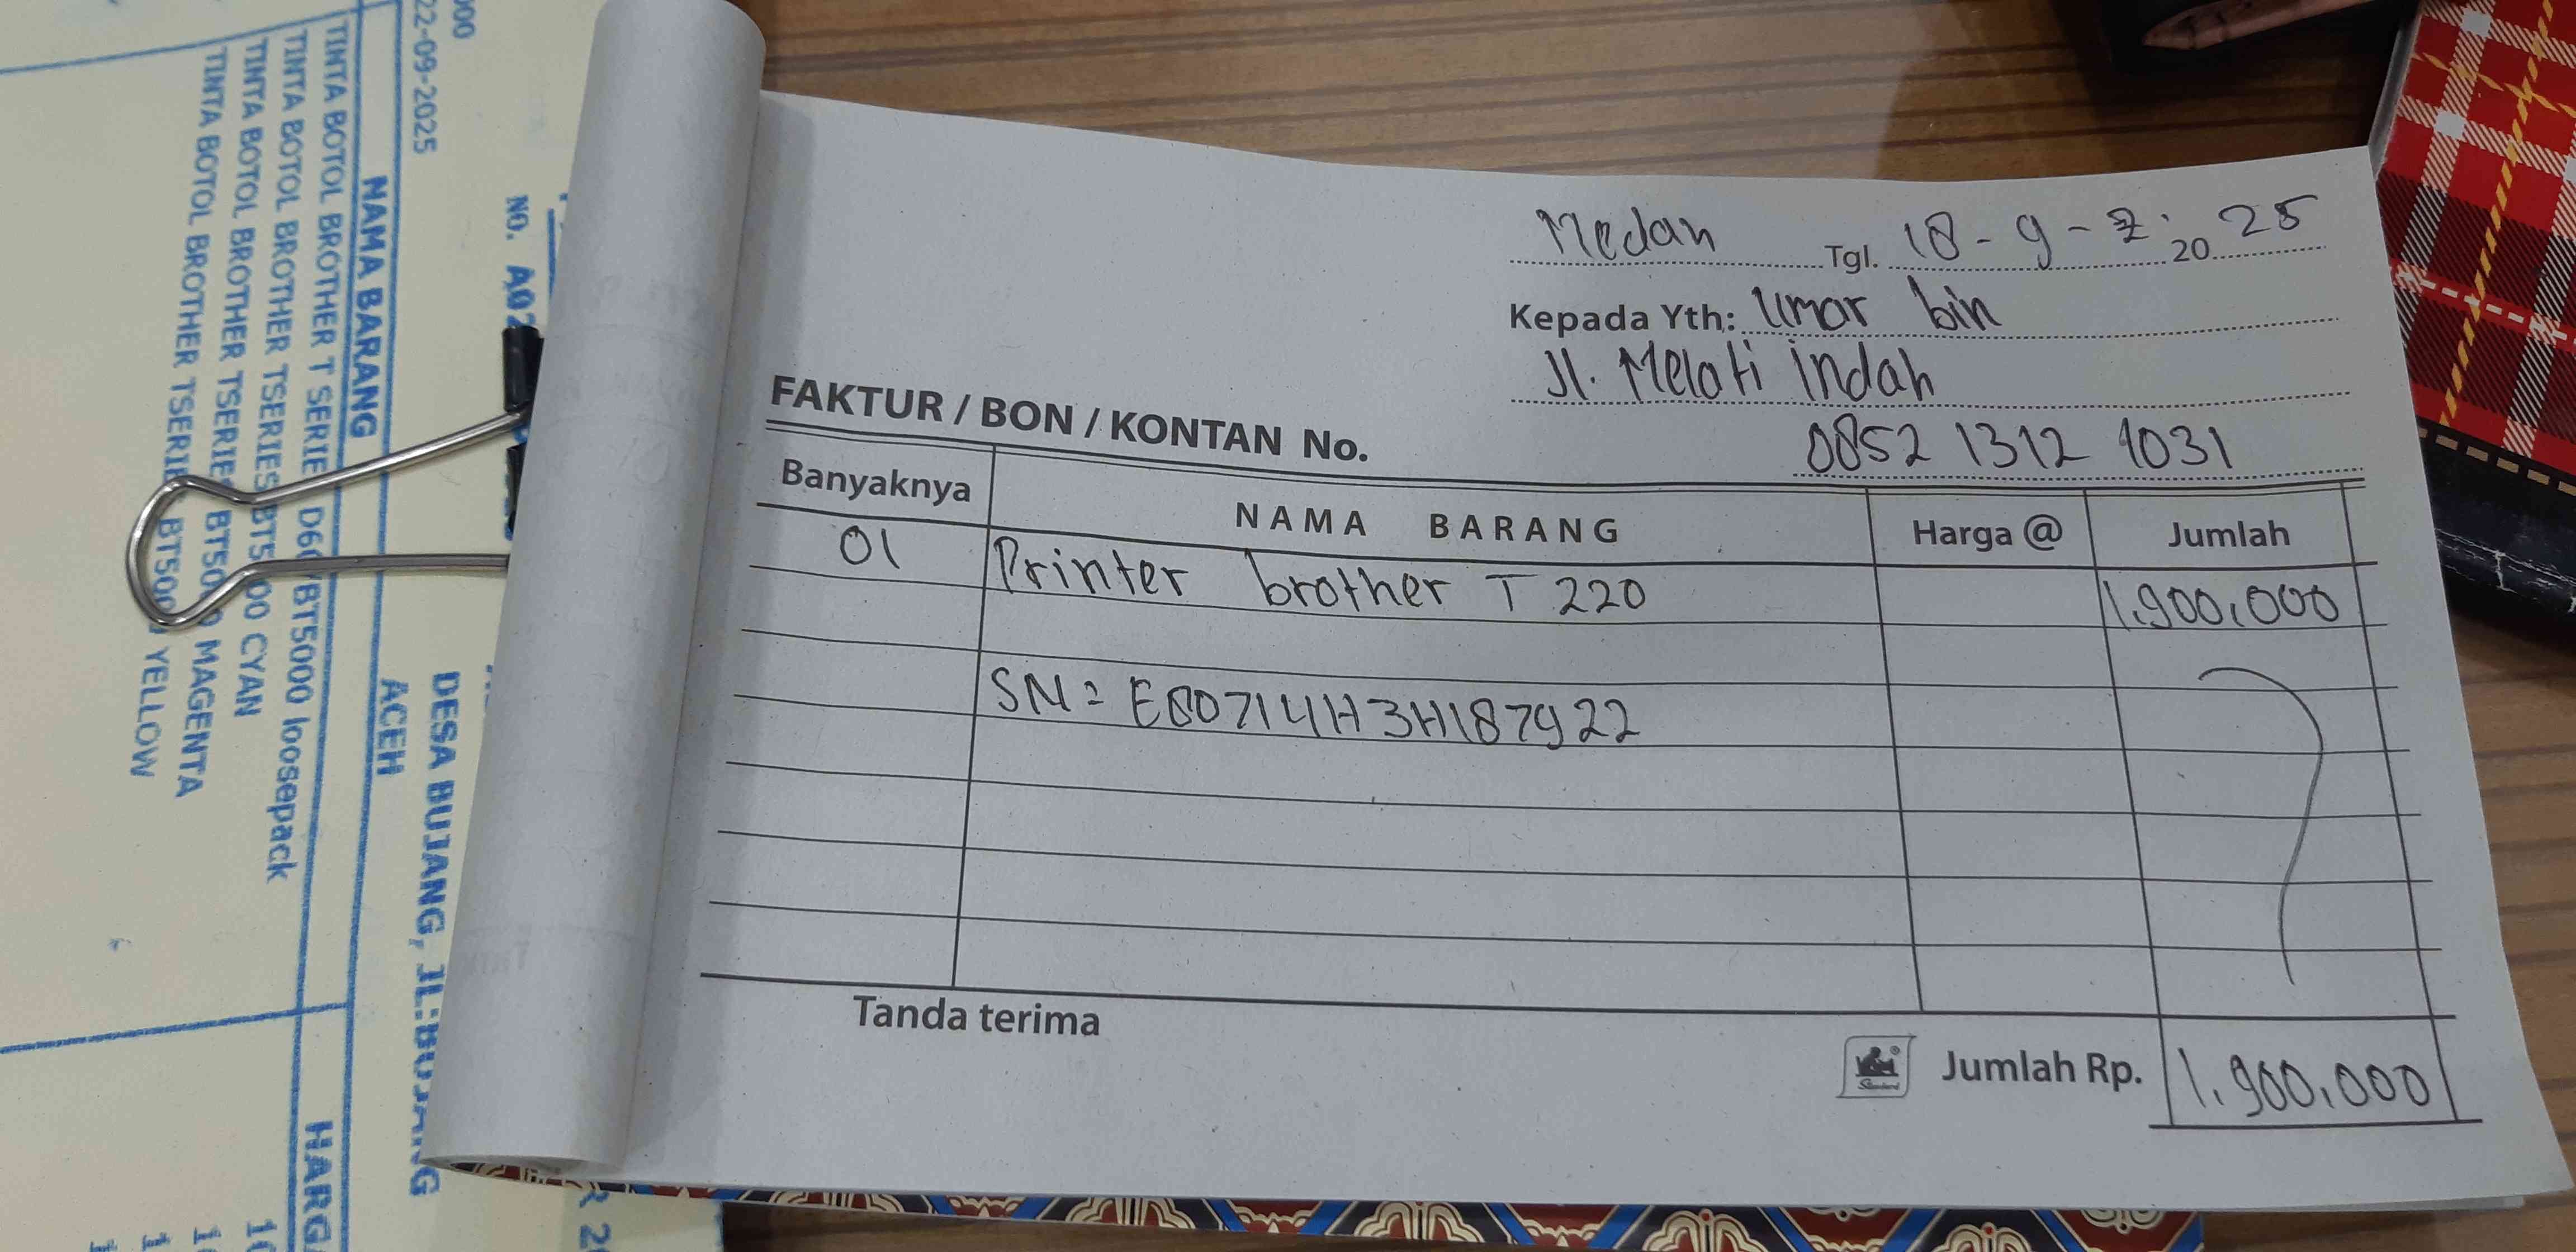 Medan Tgl. 18 - 9 - 2025
Kepada Yth: Umar bin
Jl. Melati indah
0852 1312 1031
FAKTUR / BON / KONTAN No.
Banyaknya NAMA BARANG Harga @ Jumlah
01 Printer brother T 220 1.900.000
SN = E80714H3H187922
Tanda terima
Jumlah Rp. 1.900.000
000
22-09-2025
NO. A02
DESA BUJANG, JL.BUJANG
ACEH
NAMA BARANG
HARGA
TINTA BOTOL BROTHER T SERIE D60/BT5000 loosepack
TINTA BOTOL BROTHER TSERIES BT5000 CYAN
TINTA BOTOL BROTHER TSERIES BT5000 MAGENTA
TINTA BOTOL BROTHER TSERIES BT5000 YELLOW